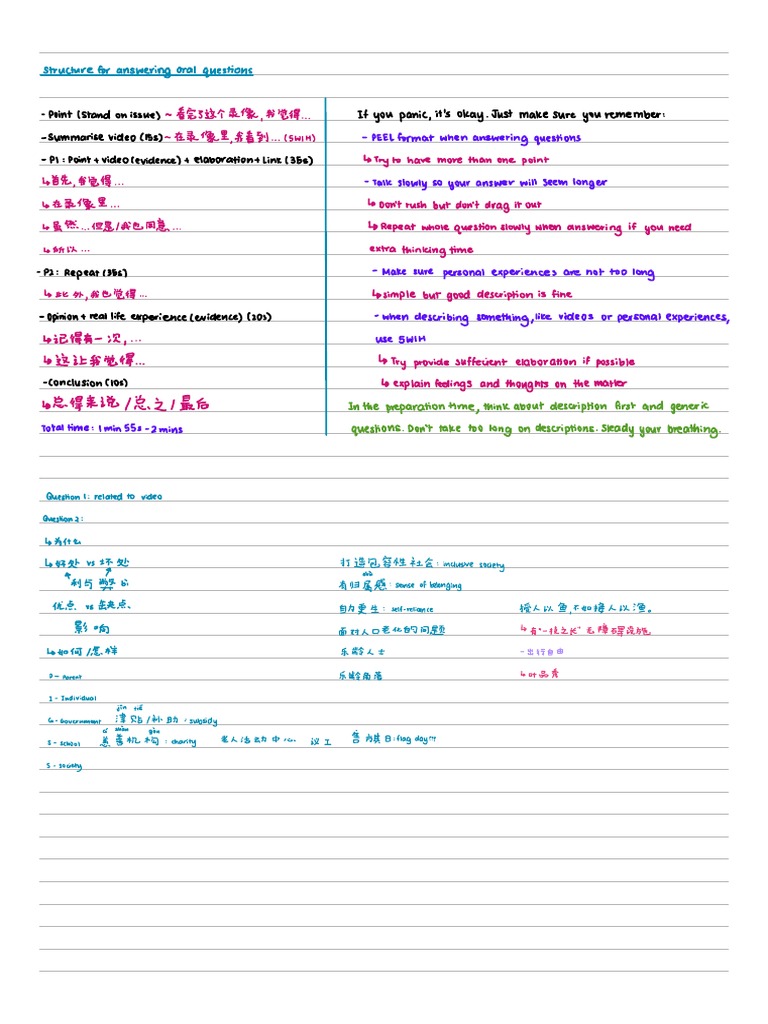 Structure for answering oral questions
- Point (Stand on issue) ~ 看完了这个录像,我觉得...
- Summarise video (15s) ~ 在录像里,我看到... (5W1H)
- P1: Point + video (evidence) + elaboration + Link (35s)
↳ 首先,我觉得...
↳ 在录像里...
↳ 虽然...但是/我也同意...
↳ 所以...
- P2: Repeat (35s)
↳ 此外,我也觉得...
- Opinion + real life experience (evidence) (20s)
↳ 记得有一次,...
↳ 这让我觉得...
- Conclusion (10s)
↳ 总得来说/总之/最后
Total time: 1 min 55s - 2 mins
If you panic, it's okay. Just make sure you remember:
- PEEL format when answering questions
↳ Try to have more than one point
- Talk slowly so your answer will seem longer
↳ Don't rush but don't drag it out
↳ Repeat whole question slowly when answering if you need
extra thinking time
- Make sure personal experiences are not too long
↳ simple but good description is fine
- when describing something, like videos or personal experiences,
use 5W1H
↳ Try provide sufficient elaboration if possible
↳ explain feelings and thoughts on the matter
In the preparation time, think about description first and generic
questions. Don't take too long on descriptions. Steady your breathing.
Question 1: related to video
Question 2:
↳ 为什么
↳ 好处 vs 坏处
利与弊 bì
优点 vs 缺点
影响
↳ 如何/怎样
P - Parent
I - Individual
jīn tiē
G - Government 津贴/补助: subsidy
cí shàn gòu
S - School 慈善机构: charity 老人活动中心 议工 售旗日: flag day!!!
S - society
打造包容性社会: inclusive society
有归属感: sense of belonging
自力更生: self-reliance
面对人口老化的问题
乐龄人士
乐龄角落
授人以鱼,不如授人以渔。
↳ 有"一技之长" 无障碍设施
- 出行自由